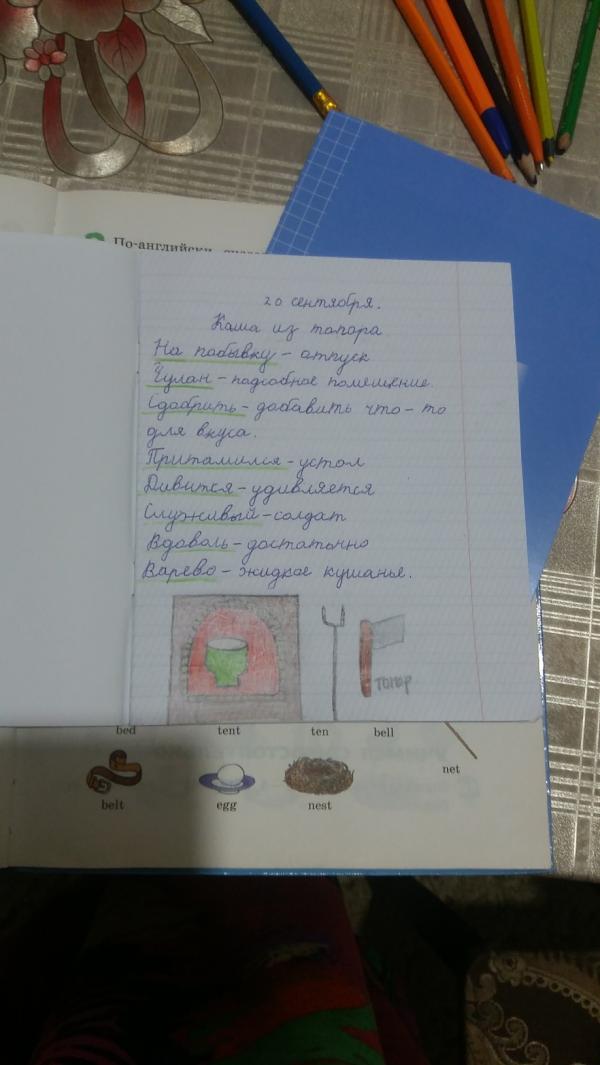 По-английски
20 сентября.
Каша из топора
На побывку – отпуск
Чулан – подсобное помещение.
Сдобрить – добавить что-то
для вкуса.
Притомился – устал
Дивится – удивляется
Служивый – солдат
Вдоволь – достаточно
Варево – жидкое кушанье.
топор
bed tent ten bell
net
belt egg nest